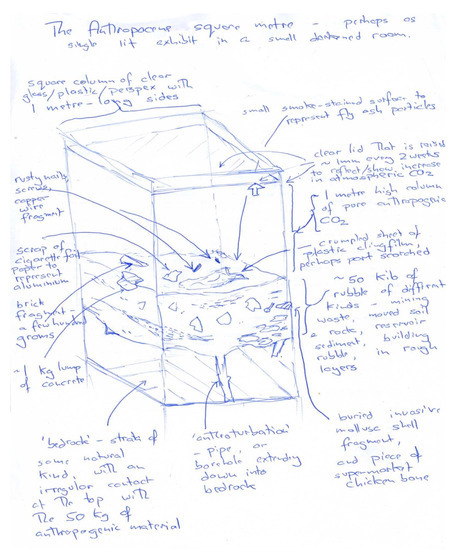 The Anthropocene square metre – perhaps as
single lit exhibit in a small darkened room.
square column of clear
glass/plastic/perspex with
1 metre-long sides
small smoke-stained surface to
represent fly ash particles
clear lid that is raised
~ 1mm every 2 weeks
to reflect/show increase
in atmospheric CO2
~ 1 metre high column
of pure anthropogenic
CO2
crumpled sheet of
plastic clingfilm,
perhaps part scorched
~ 50 kilo of
rubble of different
kinds – mining
waste, moved soil
& rock, reservoir
sediment, building
rubble, in rough
layers
buried invasive
mollusc shell
fragment,
and piece of
supermarket
chicken bone
rusty nails,
screws,
copper
wire
fragment
scrap of
cigarette foil
paper to
represent
aluminium
brick
fragment -
a few hundred
grams
~1 kg lump
of concrete
'bedrock' – strata of
some natural
kind, with an
irregular contact
at the top with
the 50 kg of
anthropogenic material
'anthroturbation'
- pipe, or
borehole extruding
down into
bedrock